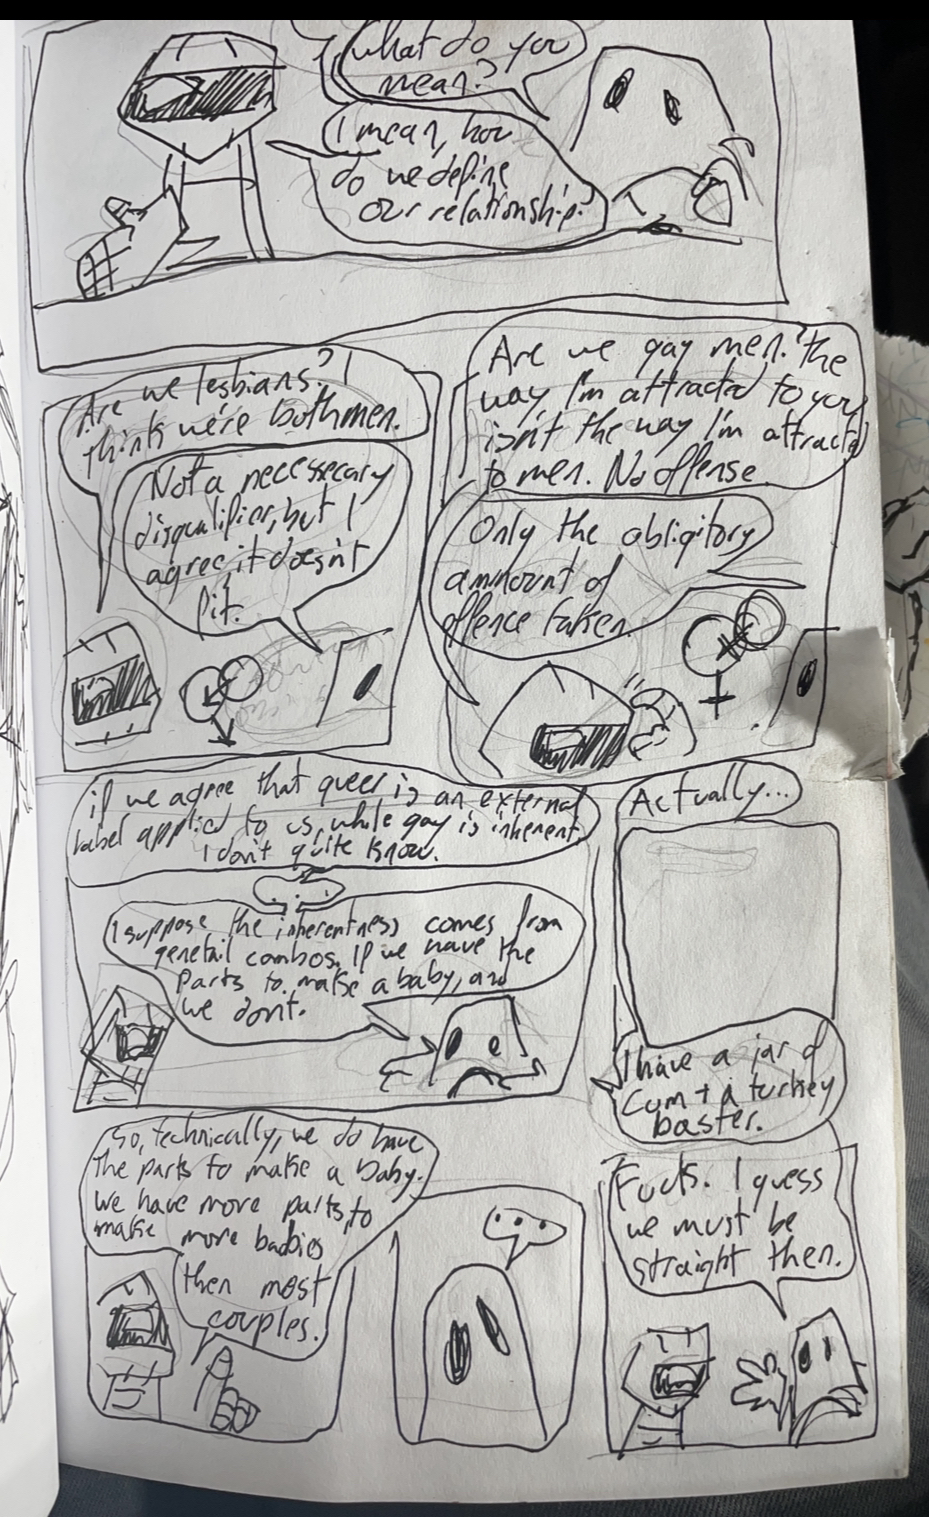 What do you
mean?
I mean, how
do we define
our relationship?
Are we lesbians? I
think we're both men.
Not a necessecary
disqualifier, but I
agree, it doesn't
fit.
Are we gay men? the
way I'm attracted to you
isn't the way I'm attracted
to men. No offense.
Only the obligitory
ammount of
offence taken.
if we agree that queer is an external
label applied to us, while gay is inherent,
I don't quite know.
...
I suppose the inherentness comes from
genetail combos. If we have the
parts to make a baby, and
we don't.
Actually...
I have a jar of
cum + a turkey
baster.
So, technically, we do have
the parts to make a baby.
We have more parts to
make more babies
then most
couples.
...
Fucks. I guess
we must be
straight then.